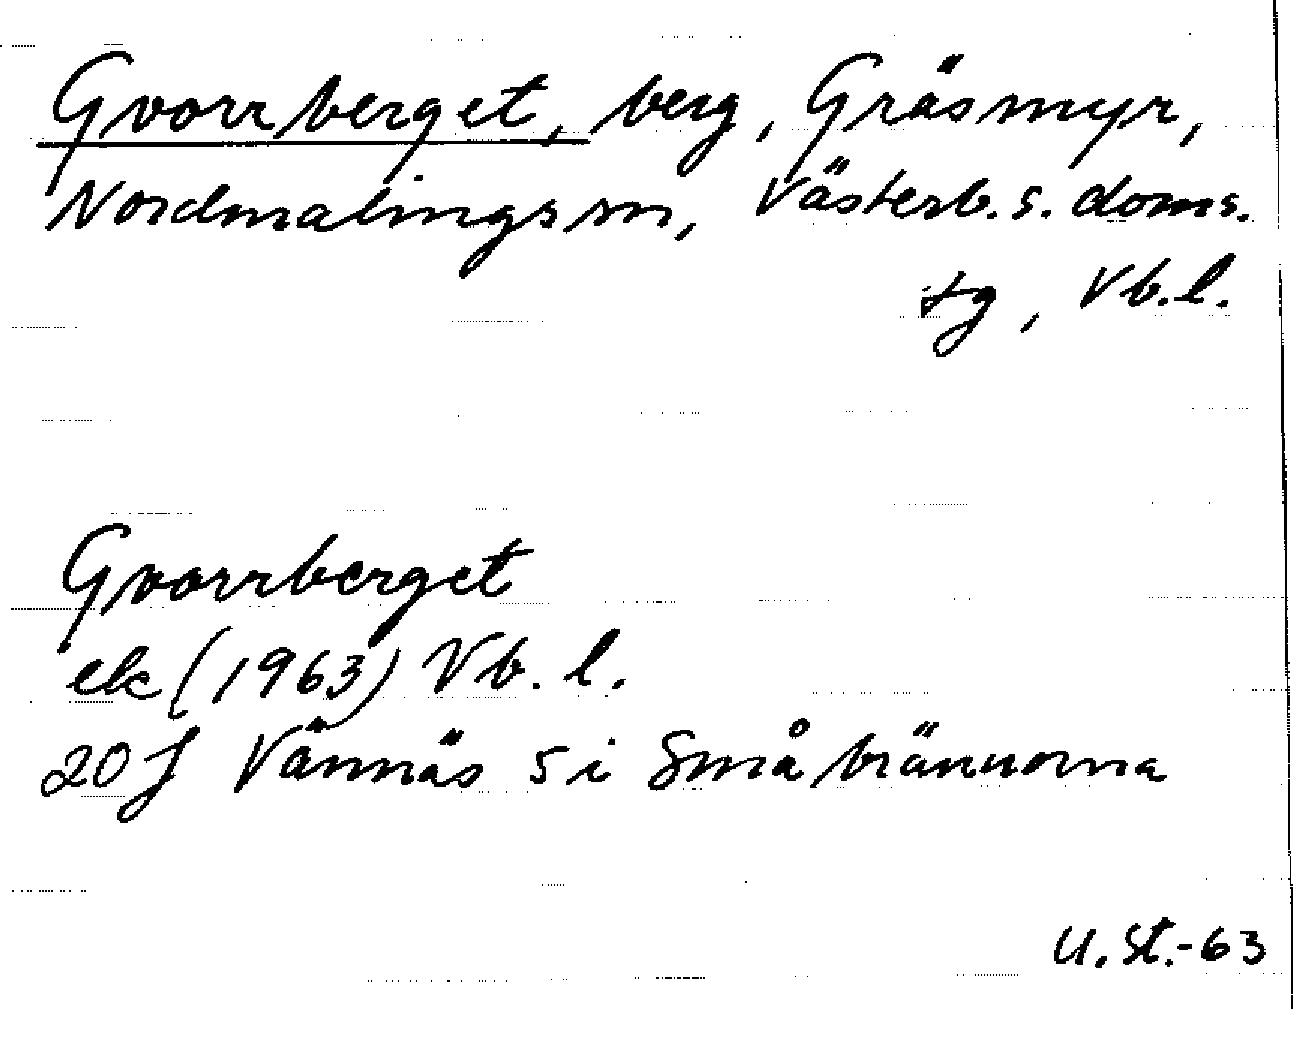 Gvorrberget, berg, Gräsmyr,
Nordmalings sn, Västerb. s. doms.
tg, Vb. l.
Gvorrberget
ek (1963) Vb. l.
20 J Vännäs 5 i Småbrännorna
U. St. -63